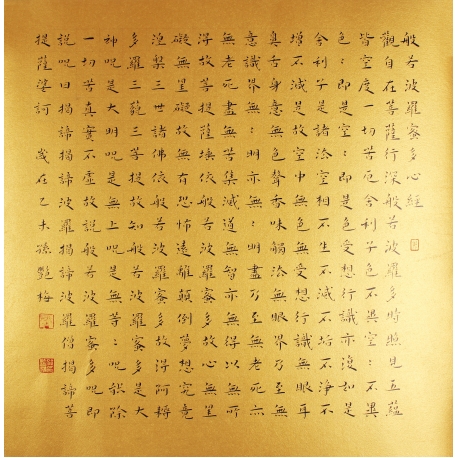 般若波羅蜜多心經
觀自在菩薩行深般若波羅多時照見五蘊
皆空度一切苦厄舍利子色不異空：不異
色：即是空：即是色受想行識亦復如是
舍利子是諸法空相不生不滅不垢不淨不
增不減是故空中無色無受想行識無眼耳
鼻舌身意無色聲香味觸法無眼界乃至無
意識界無：明亦無：明盡乃至無老死亦
無老死盡無苦集滅道無智亦無得以無所
得故菩提薩埵依般若波羅蜜多故心無罣
礙無罣礙故無有恐怖遠離顛倒夢想究竟
涅槃三世諸佛依般若波羅蜜多故得阿耨
多羅三藐三菩提故知般若波羅蜜多是大
神呪是大明呪是無上呪是無等：呪能除
一切苦真實不虛故說般若波羅蜜多呪即
說呪曰揭諦揭諦波羅揭諦波羅僧揭諦菩
提薩婆訶 歲在乙未孫艷梅